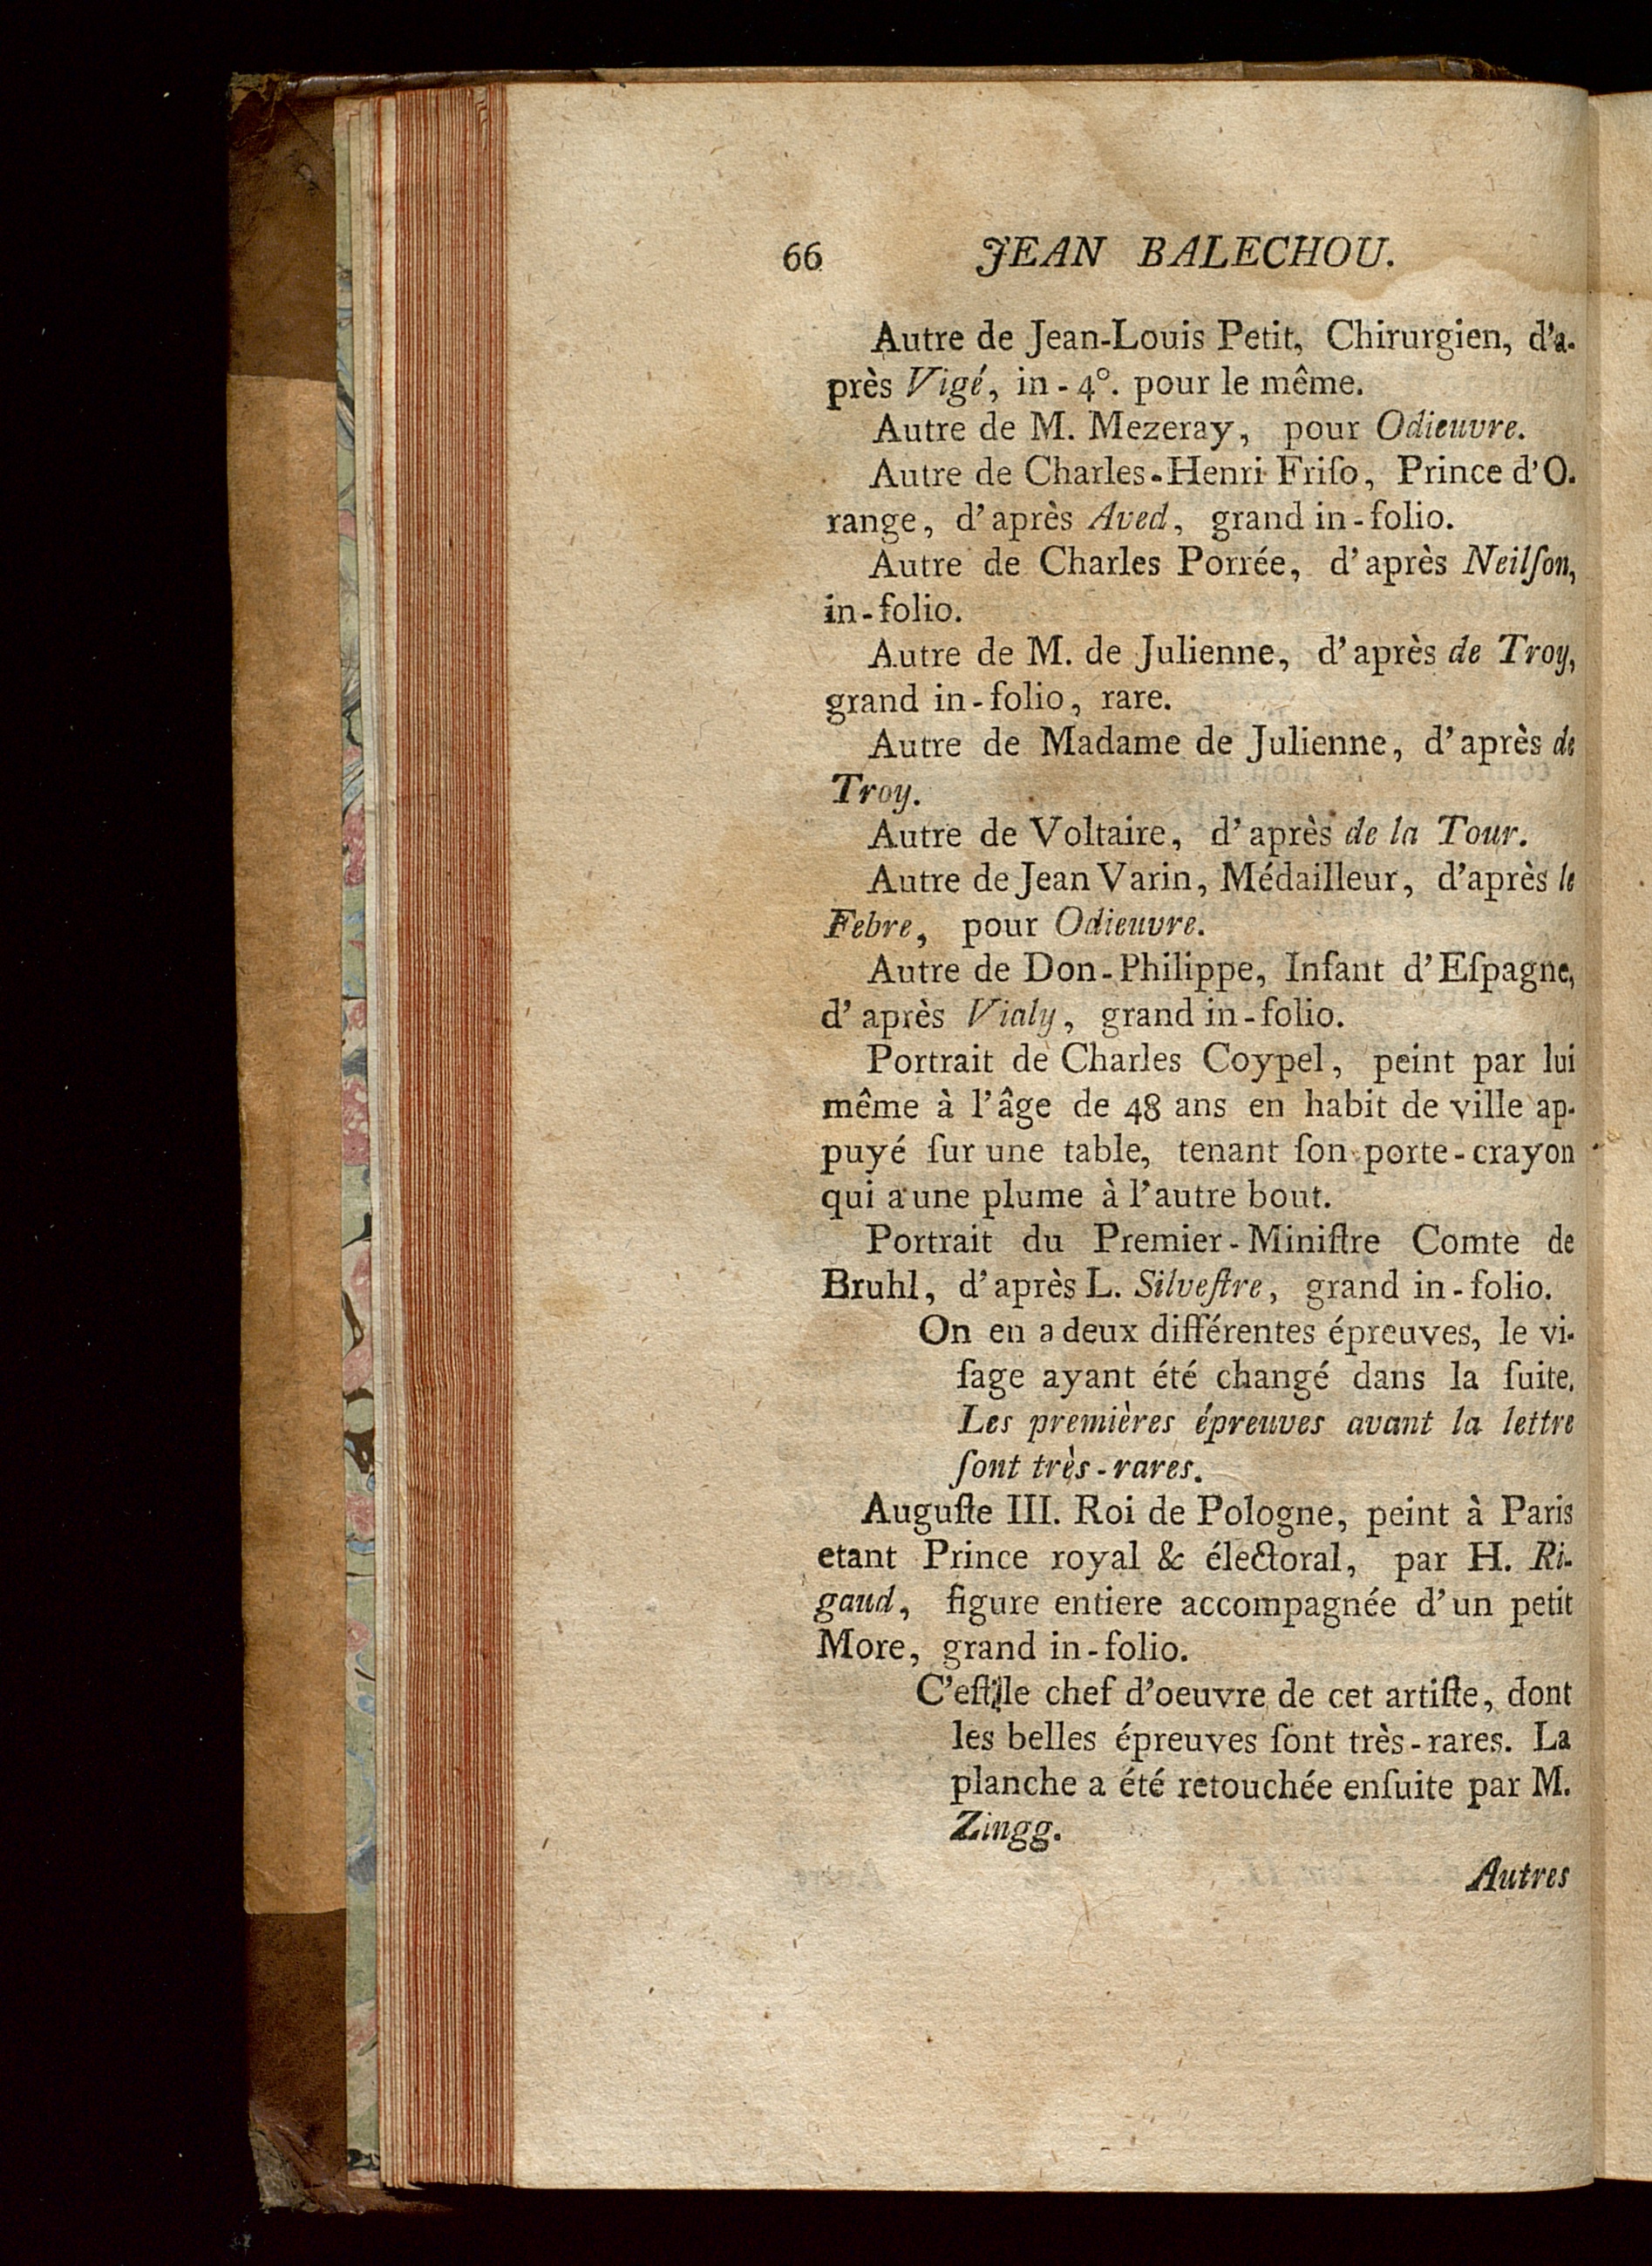 66 JEAN BALECHOU.
Autre de Jean-Louis Petit, Chirurgien, d'a-
près Vigé, in-4°. pour le même.
Autre de M. Mezeray, pour Odieuvre.
Autre de Charles-Henri Friſo, Prince d'O-
range, d'après Aved, grand in-folio.
Autre de Charles Porrée, d'après Neilſon,
in-folio.
Autre de M. de Julienne, d'après de Troy,
grand in-folio, rare.
Autre de Madame de Julienne, d'après de
Troy.
Autre de Voltaire, d'après de la Tour.
Autre de Jean Varin, Médailleur, d'après le
Febre, pour Odieuvre.
Autre de Don-Philippe, Infant d'Eſpagne,
d'après Vialy, grand in-folio.
Portrait de Charles Coypel, peint par lui
même à l'âge de 48 ans en habit de ville ap-
puyé ſur une table, tenant ſon porte-crayon
qui a une plume à l'autre bout.
Portrait du Premier-Miniſtre Comte de
Bruhl, d'après L. Silveſtre, grand in-folio.
On en a deux différentes épreuves, le vi-
ſage ayant été changé dans la ſuite.
Les premières épreuves avant la lettre
ſont très-rares.
Auguſte III. Roi de Pologne, peint à Paris
etant Prince royal & électoral, par H. Ri-
gaud, figure entiere accompagnée d'un petit
More, grand in-folio.
C'eſt le chef d'oeuvre de cet artiſte, dont
les belles épreuves ſont très-rares. La
planche a été retouchée enſuite par M.
Zingg.
Autres